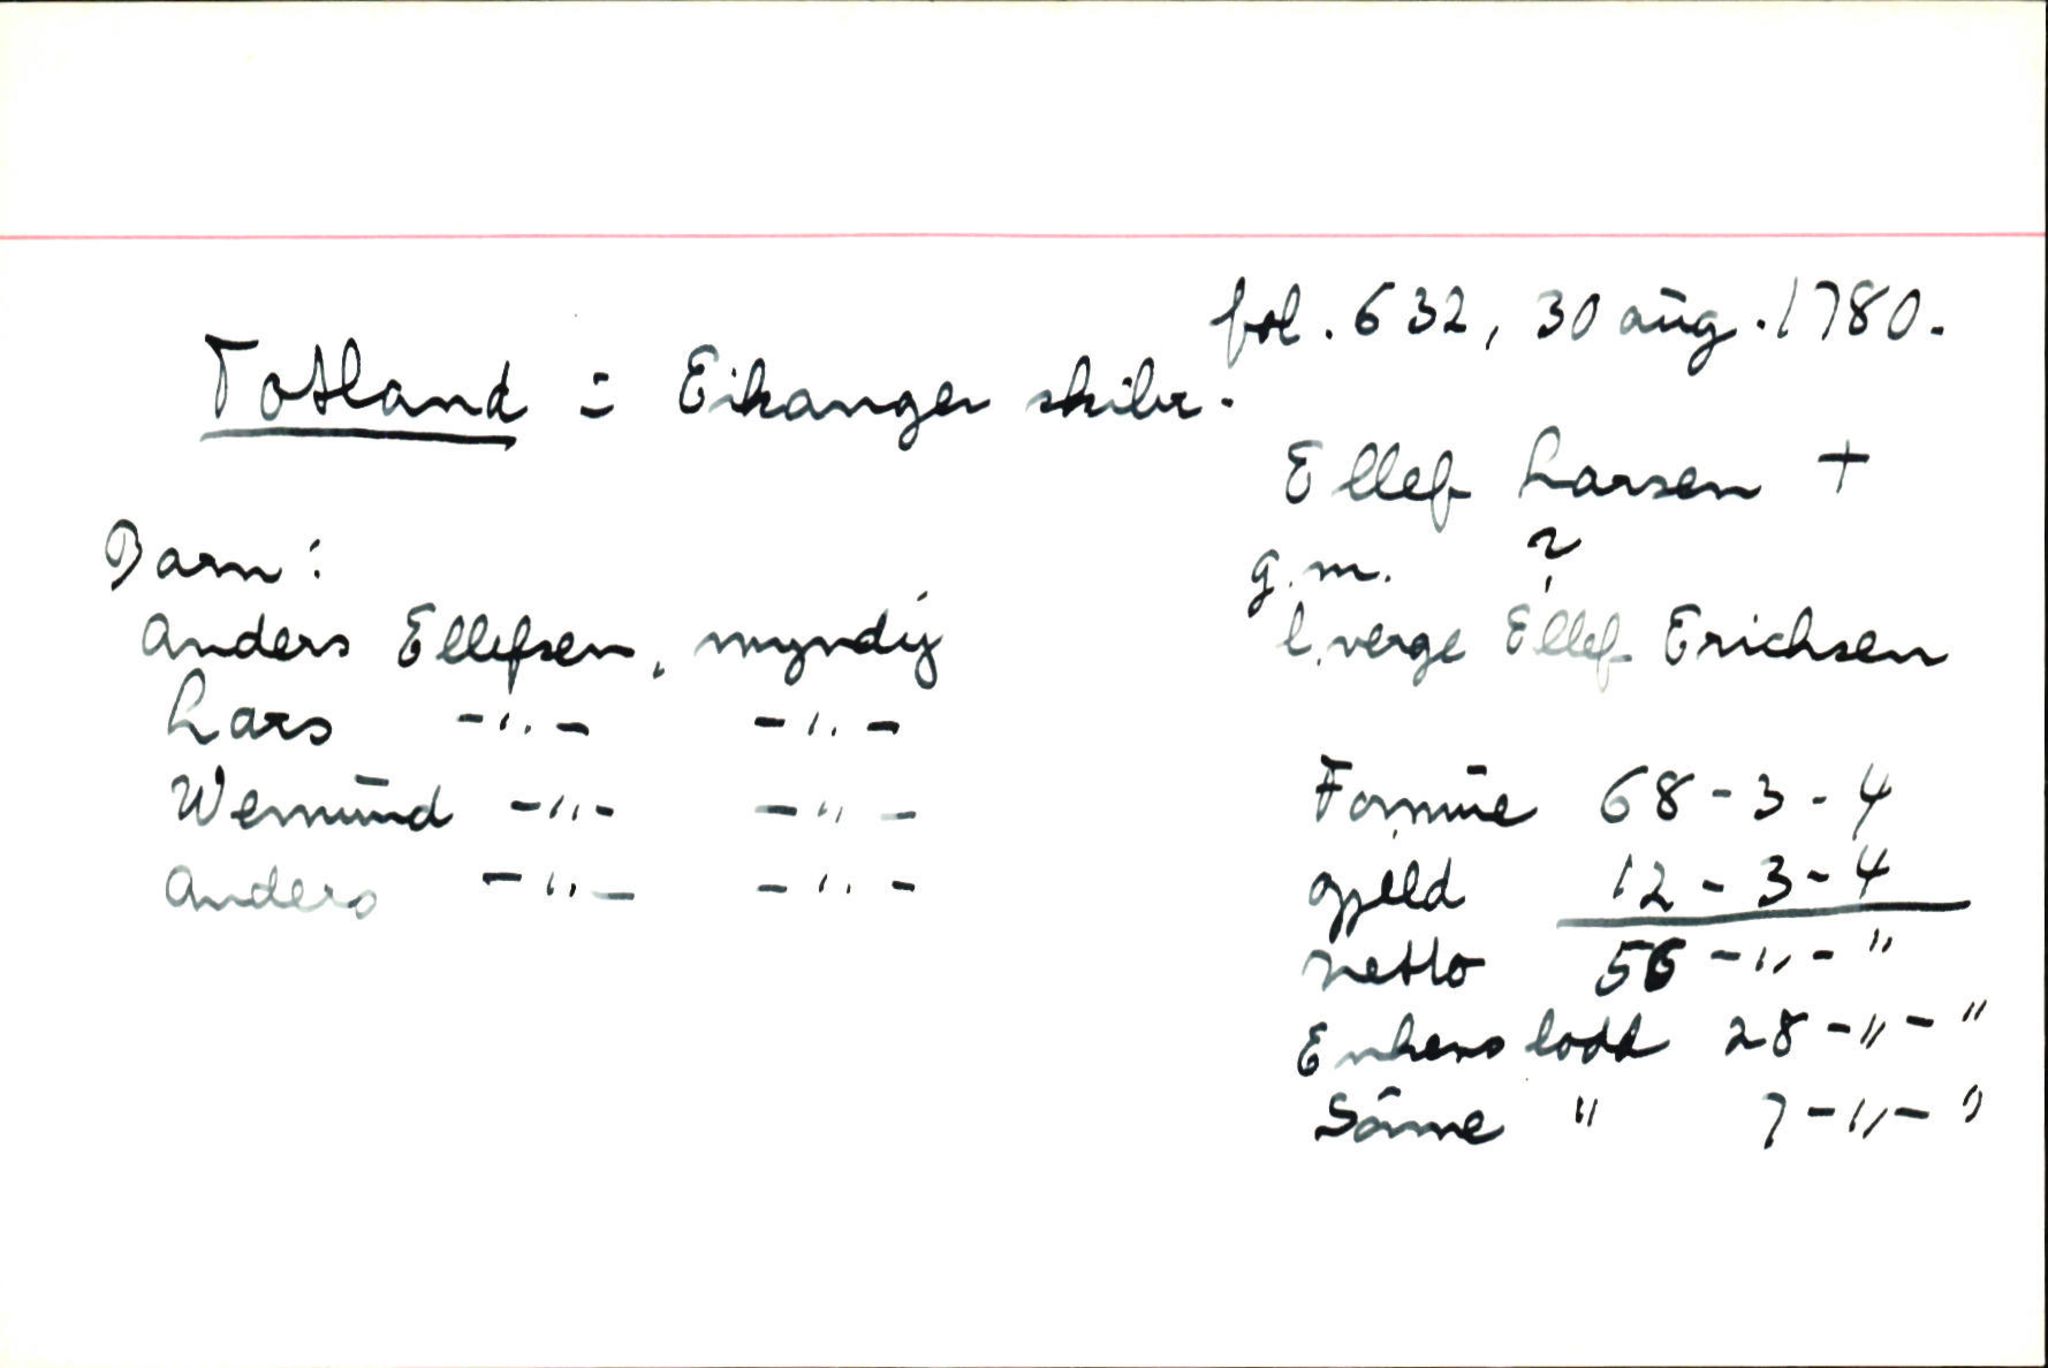 fol. 632, 30 aug. 1780.
Totland = Eikanger skibr.
Ellef Larsen +
g. m. ?
l. verge Ellef Erichsen
Barn:
Anders Ellefsen, myndig
Lars -"- -"-
Wemund -"- -"-
Anders -"- -"-
Formue 68-3-4
gjeld 12-3-4
netto 56-"-"
Enkens lodd 28-"-"
Sönne " 7-"-"